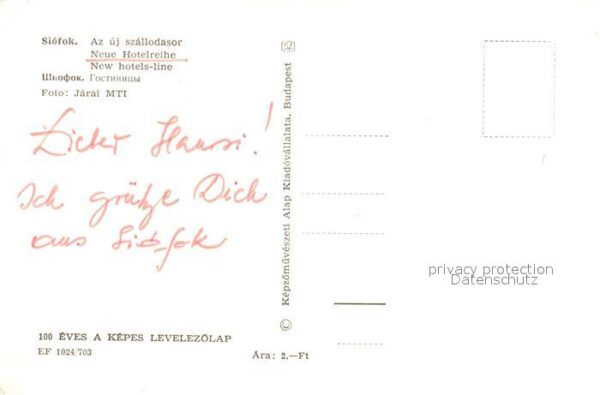 Siófok. Az új szállodasor
Neue Hotelreihe
New hotels-line
Шиофок. Гостиницы
Foto: Járai MTI
Lieber Hansi!
Ich grüße Dich
aus Siófok
100 ÉVES A KÉPES LEVELEZŐLAP
EF 1024/703
Ára: 2,—Ft
© Képzőművészeti Alap Kiadóvállalata, Budapest
privacy protection
Datenschutz